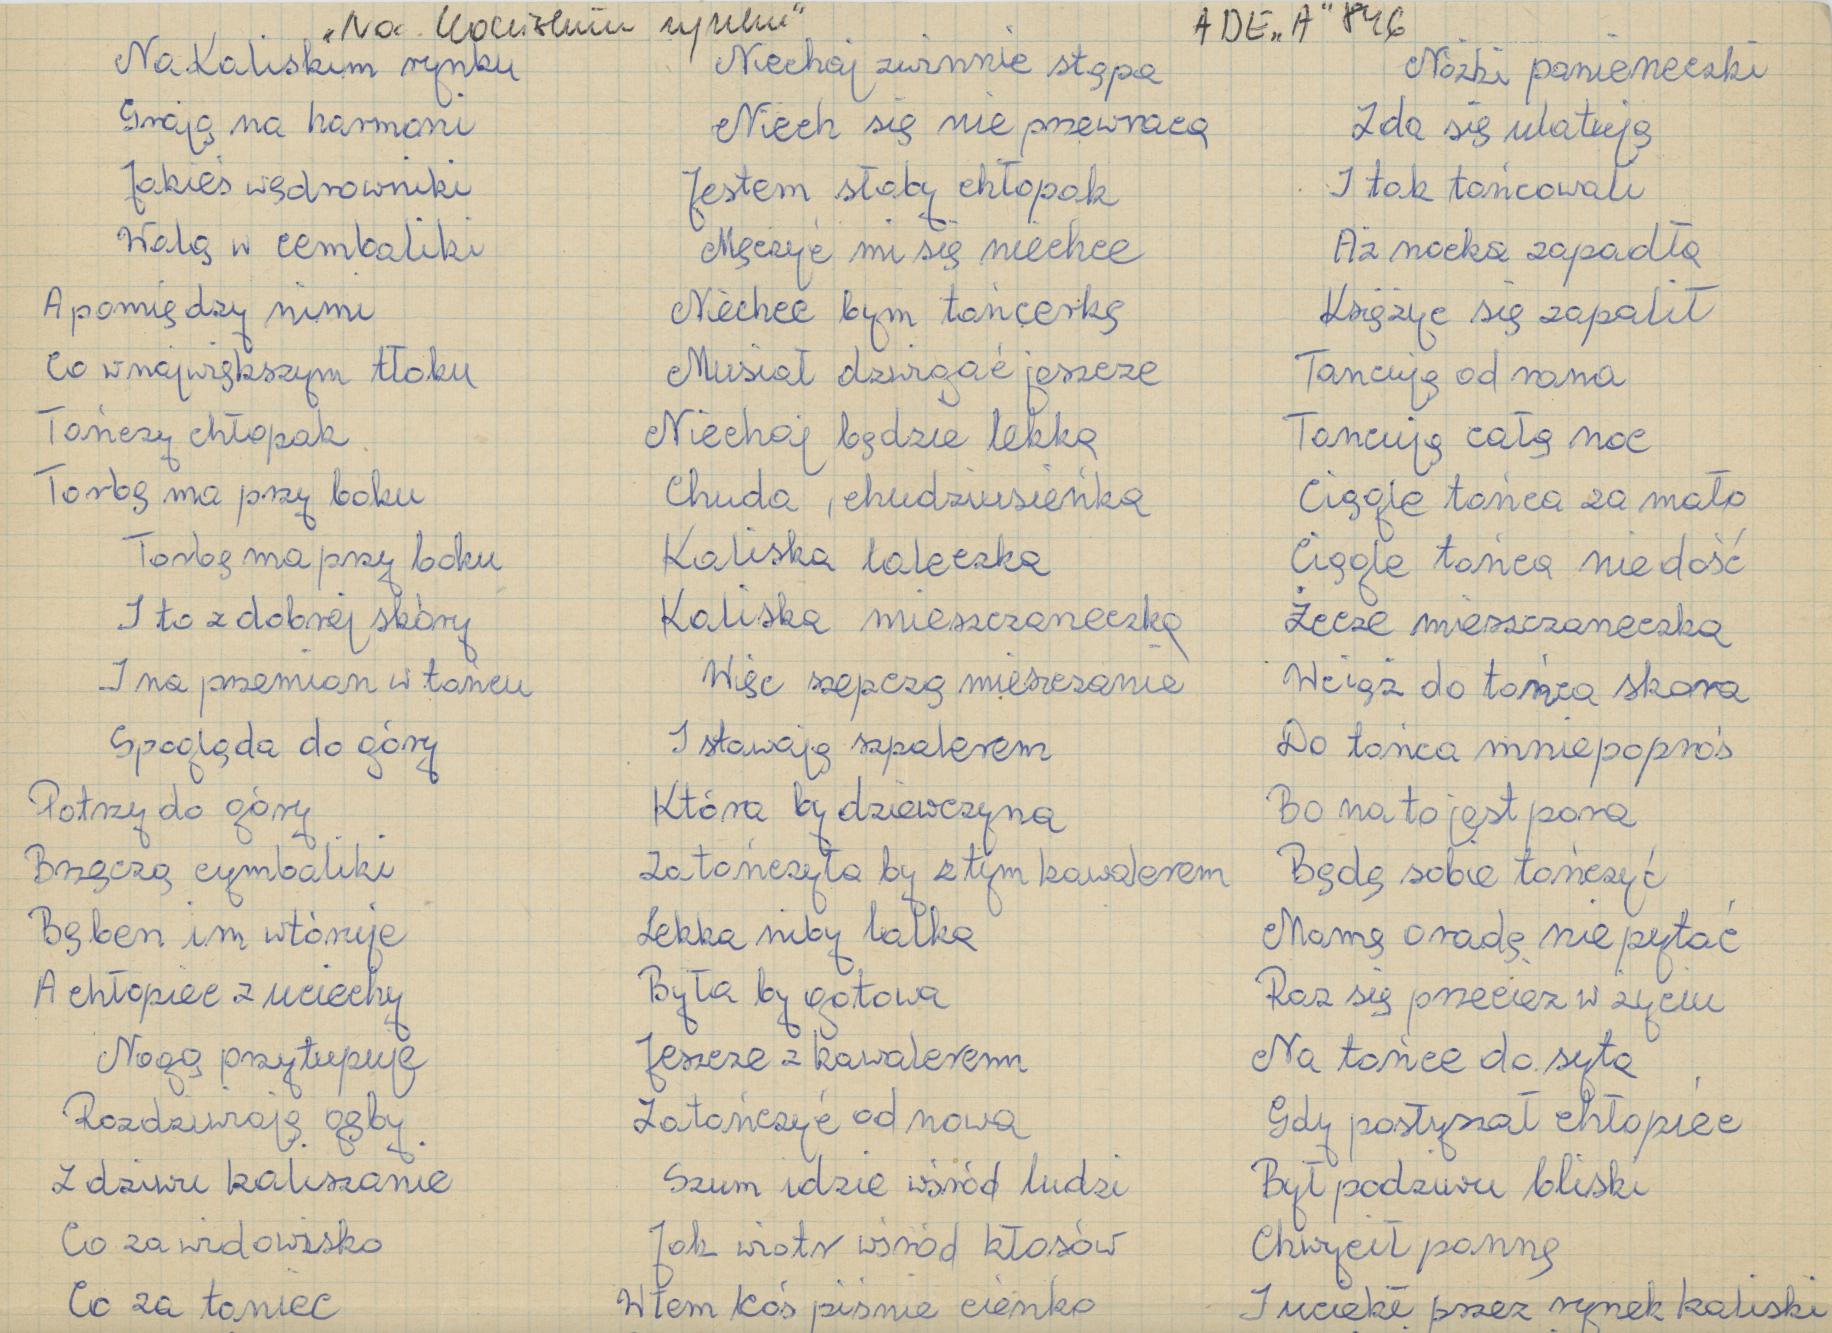 „Na Kaliskim rynku"
ADE „A" 846
Na Kaliskim rynku
Grają na harmoni
Jakieś wędrowniki
Walą w cembaliki
A pomiędzy nimi
Co w największym tłoku
Tańczy chłopak
Torbę ma przy boku
Torbę ma przy boku
I to z dobrej skóry
I na przemian w tańcu
Spogląda do góry
Patrzy do góry
Brzęczą cymbaliki
Bęben im wtóruje
A chłopiec z uciechy
Nogą przytupuje
Rozdziwiają gęby
Z dziwu kaliszanie
Co za widowisko
Co za taniec
Niechaj zwinnie stąpa
Niech się nie przewraca
Jestem słaby chłopak
Męczyć mi się niechce
Niechce bym tancerkę
Musiał dzwigać jeszcze
Niechaj będzie lekka
Chuda, chudziusieńka
Kaliska laleczka
Kaliska mieszczaneczka
Więc szepczą mieszczanie
I stawają szpalerem
Która by dziewczyna
Zatańczyła by z tym kawalerem
Lekka niby lalka
Była by gotowa
Jeszcze z kawalerem
Zatańczyć od nowa
Szum idzie wśród ludzi
Jak wiatr wśród kłosów
Wtem ktoś piśnie cienko
Nóżki panieneczki
Zda się ulatują
I tak tańcowali
Aż nocka zapadła
Księżyc się zapalił
Tancują od rana
Tancują całą noc
Ciągle tańca za mało
Ciągle tańca nie dość
Żecze mieszczaneczka
Wciąż do tańca skora
Do tańca mnie popros
Bo na to jest pora
Będę sobie tańczyć
Mamę o radę nie pytać
Raz się przecież w życiu
Na tańce do syta
Gdy posłyszał chłopiec
Był podziwu bliski
Chwycił pannę
I uciekł przez rynek kaliski